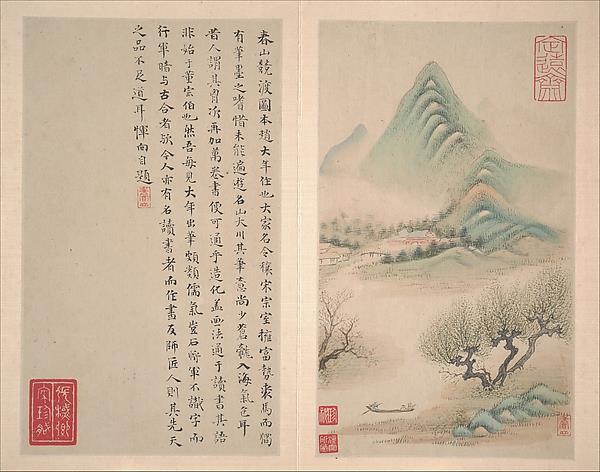 春山競渡圖本趙大年作也大家名令穰宋宗室擁富勢裘馬而獨
有筆墨之嗜惜未能遍遊名山大川其筆意尚少蒼龍入海氣色耳
昔人謂其胷次再加萬卷書便可通乎造化蓋画法通于讀書其語
非始于董宗伯也然吾每見大年出筆頗類儒氣豈石將軍不識字而
行軍暗与古合者歟令人亦有名讀書者而作畫反師匠人則其先天
之品不足道耳惲向自題